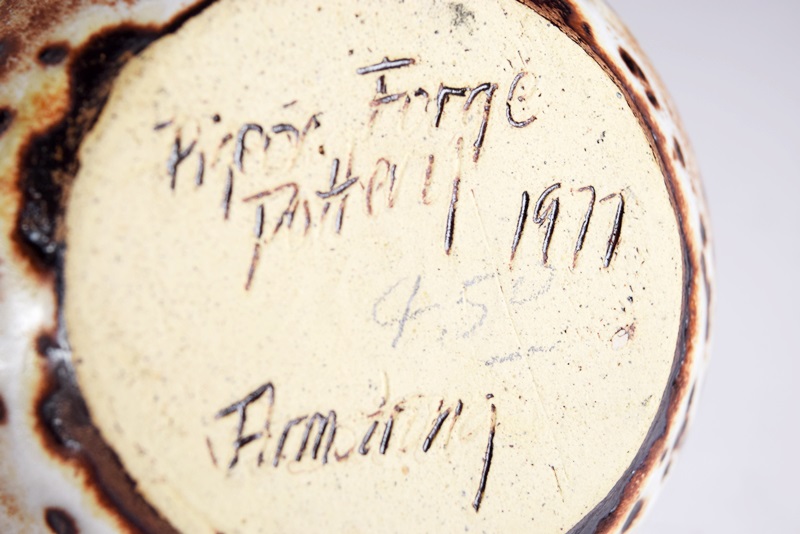 Piper Forge
Pottery 1977
4.50
Armstrong